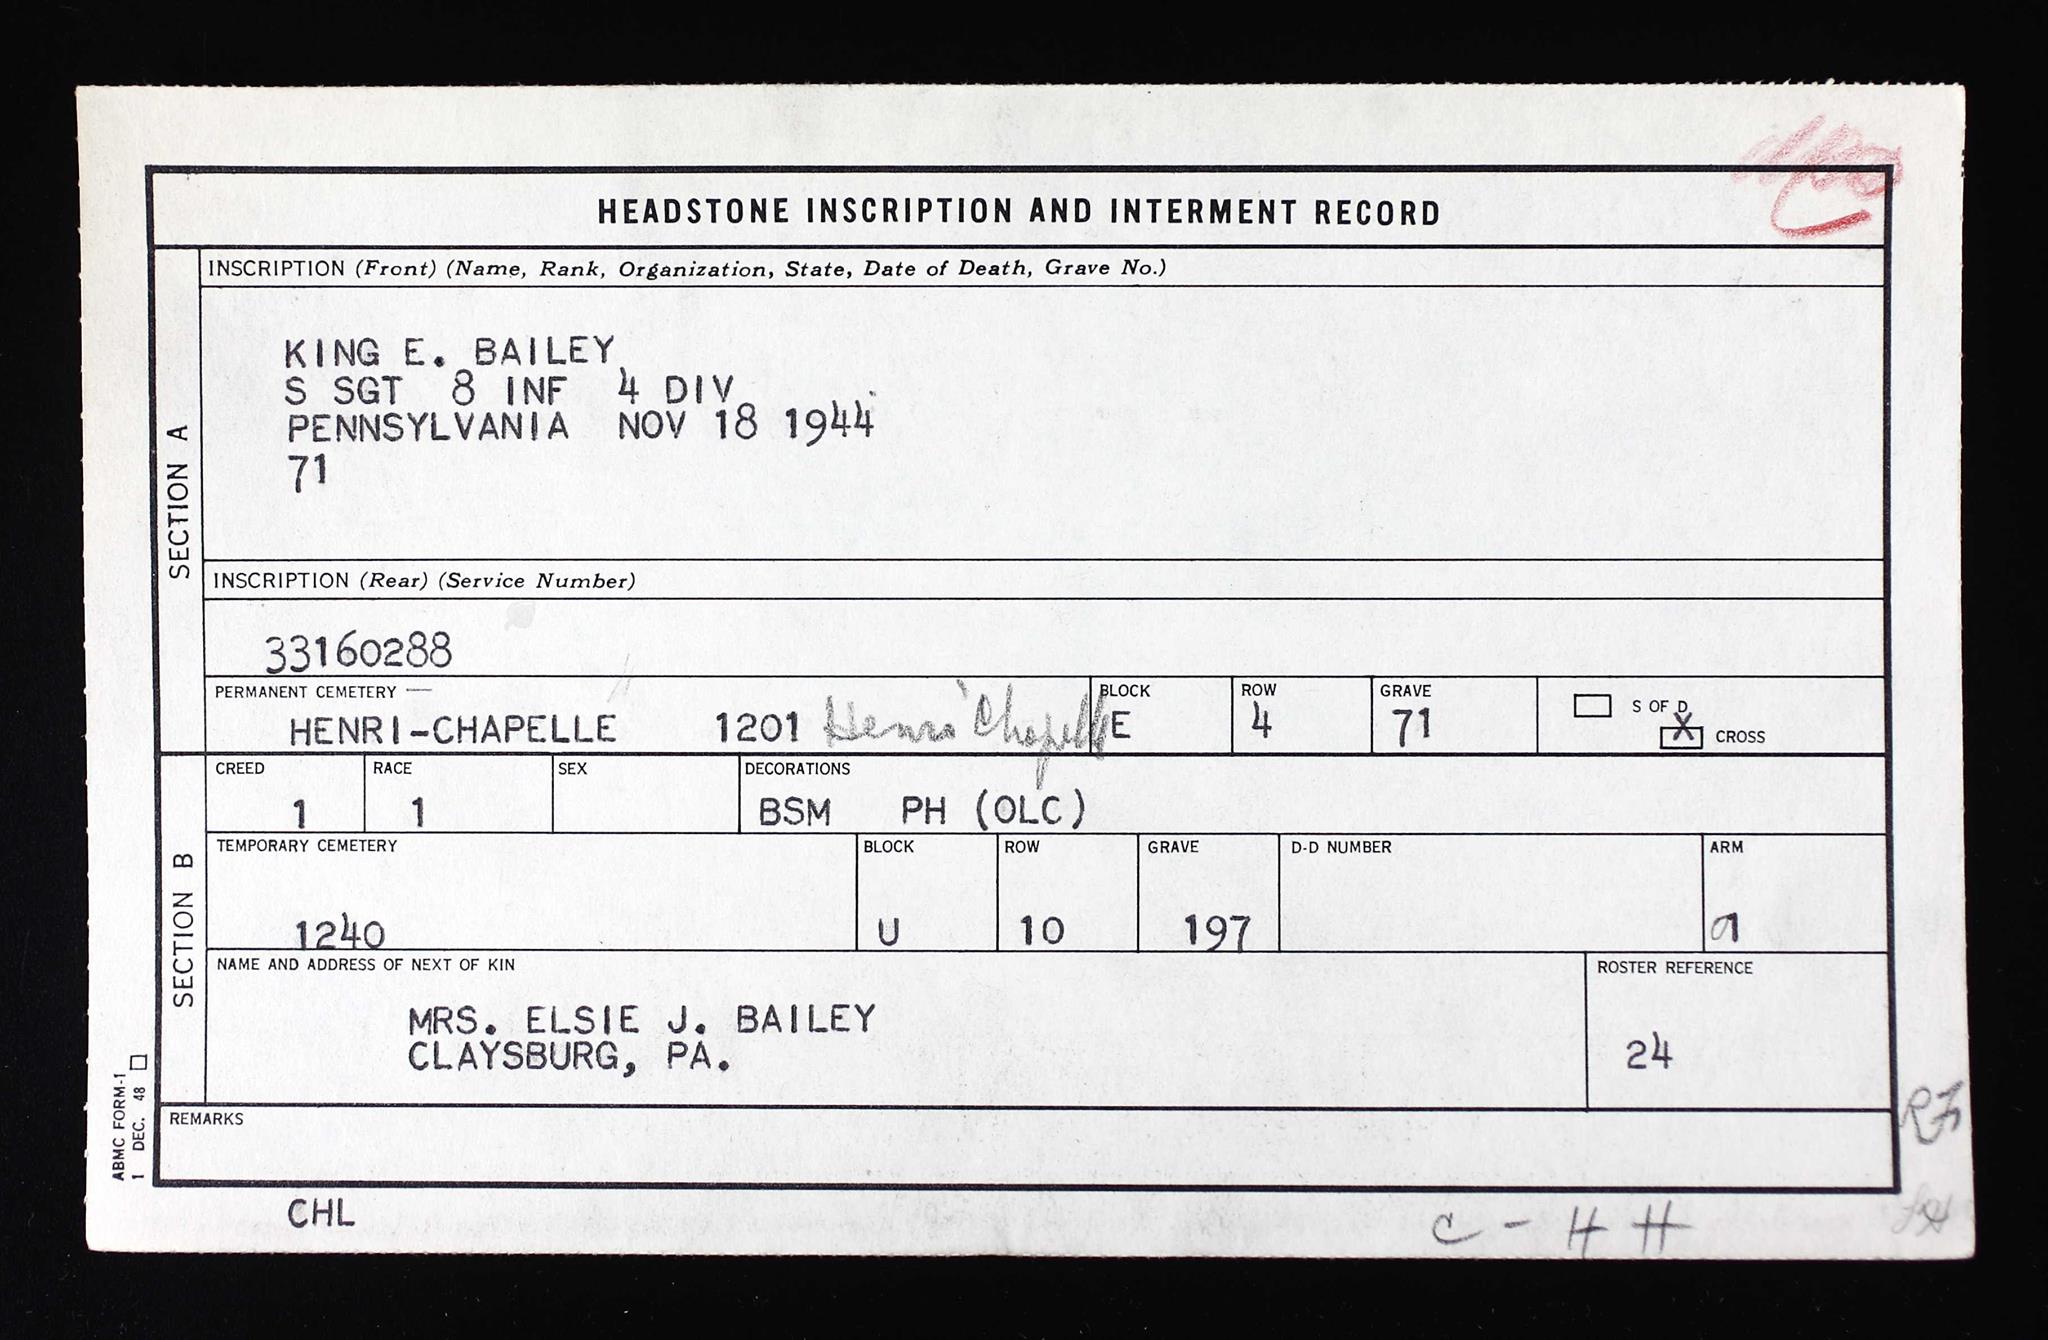 HEADSTONE INSCRIPTION AND INTERMENT RECORD
SECTION A
INSCRIPTION (Front) (Name, Rank, Organization, State, Date of Death, Grave No.)
KING E. BAILEY
S SGT 8 INF 4 DIV
PENNSYLVANIA NOV 18 1944
71
INSCRIPTION (Rear) (Service Number)
33160288
PERMANENT CEMETERY —
HENRI-CHAPELLE 1201 Henri Chapelle
BLOCK
E
ROW
4
GRAVE
71
S OF D
X CROSS
SECTION B
CREED
1
RACE
1
SEX
DECORATIONS
BSM PH (OLC)
TEMPORARY CEMETERY
1240
BLOCK
U
ROW
10
GRAVE
197
D-D NUMBER
ARM
NAME AND ADDRESS OF NEXT OF KIN
MRS. ELSIE J. BAILEY
CLAYSBURG, PA.
ROSTER REFERENCE
24
REMARKS
ABMC FORM-1
1 DEC. 48
CHL
C - H H